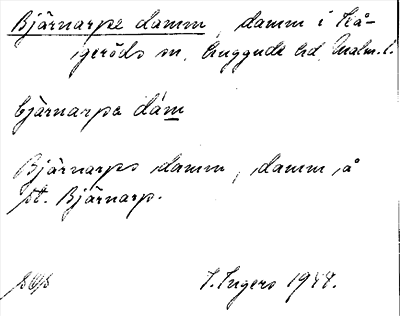 Bjärnarps damm, damm i Kå-
geröds sn, Luggude hd, Malm. l.
bjàrnarpa dám
Bjärnarps damm, damm, å
st. Bjärnarp.
I. Ingers 1944.